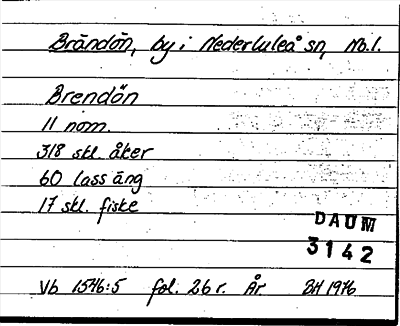 Brändön, by i Nederluleå sn, Nb.l.
Brendön
11 nom.
318 skl. åker
60 lass äng
17 skl. fiske
DAUM
3142
Vb 1546:5 fol. 26 r. År BH 1976